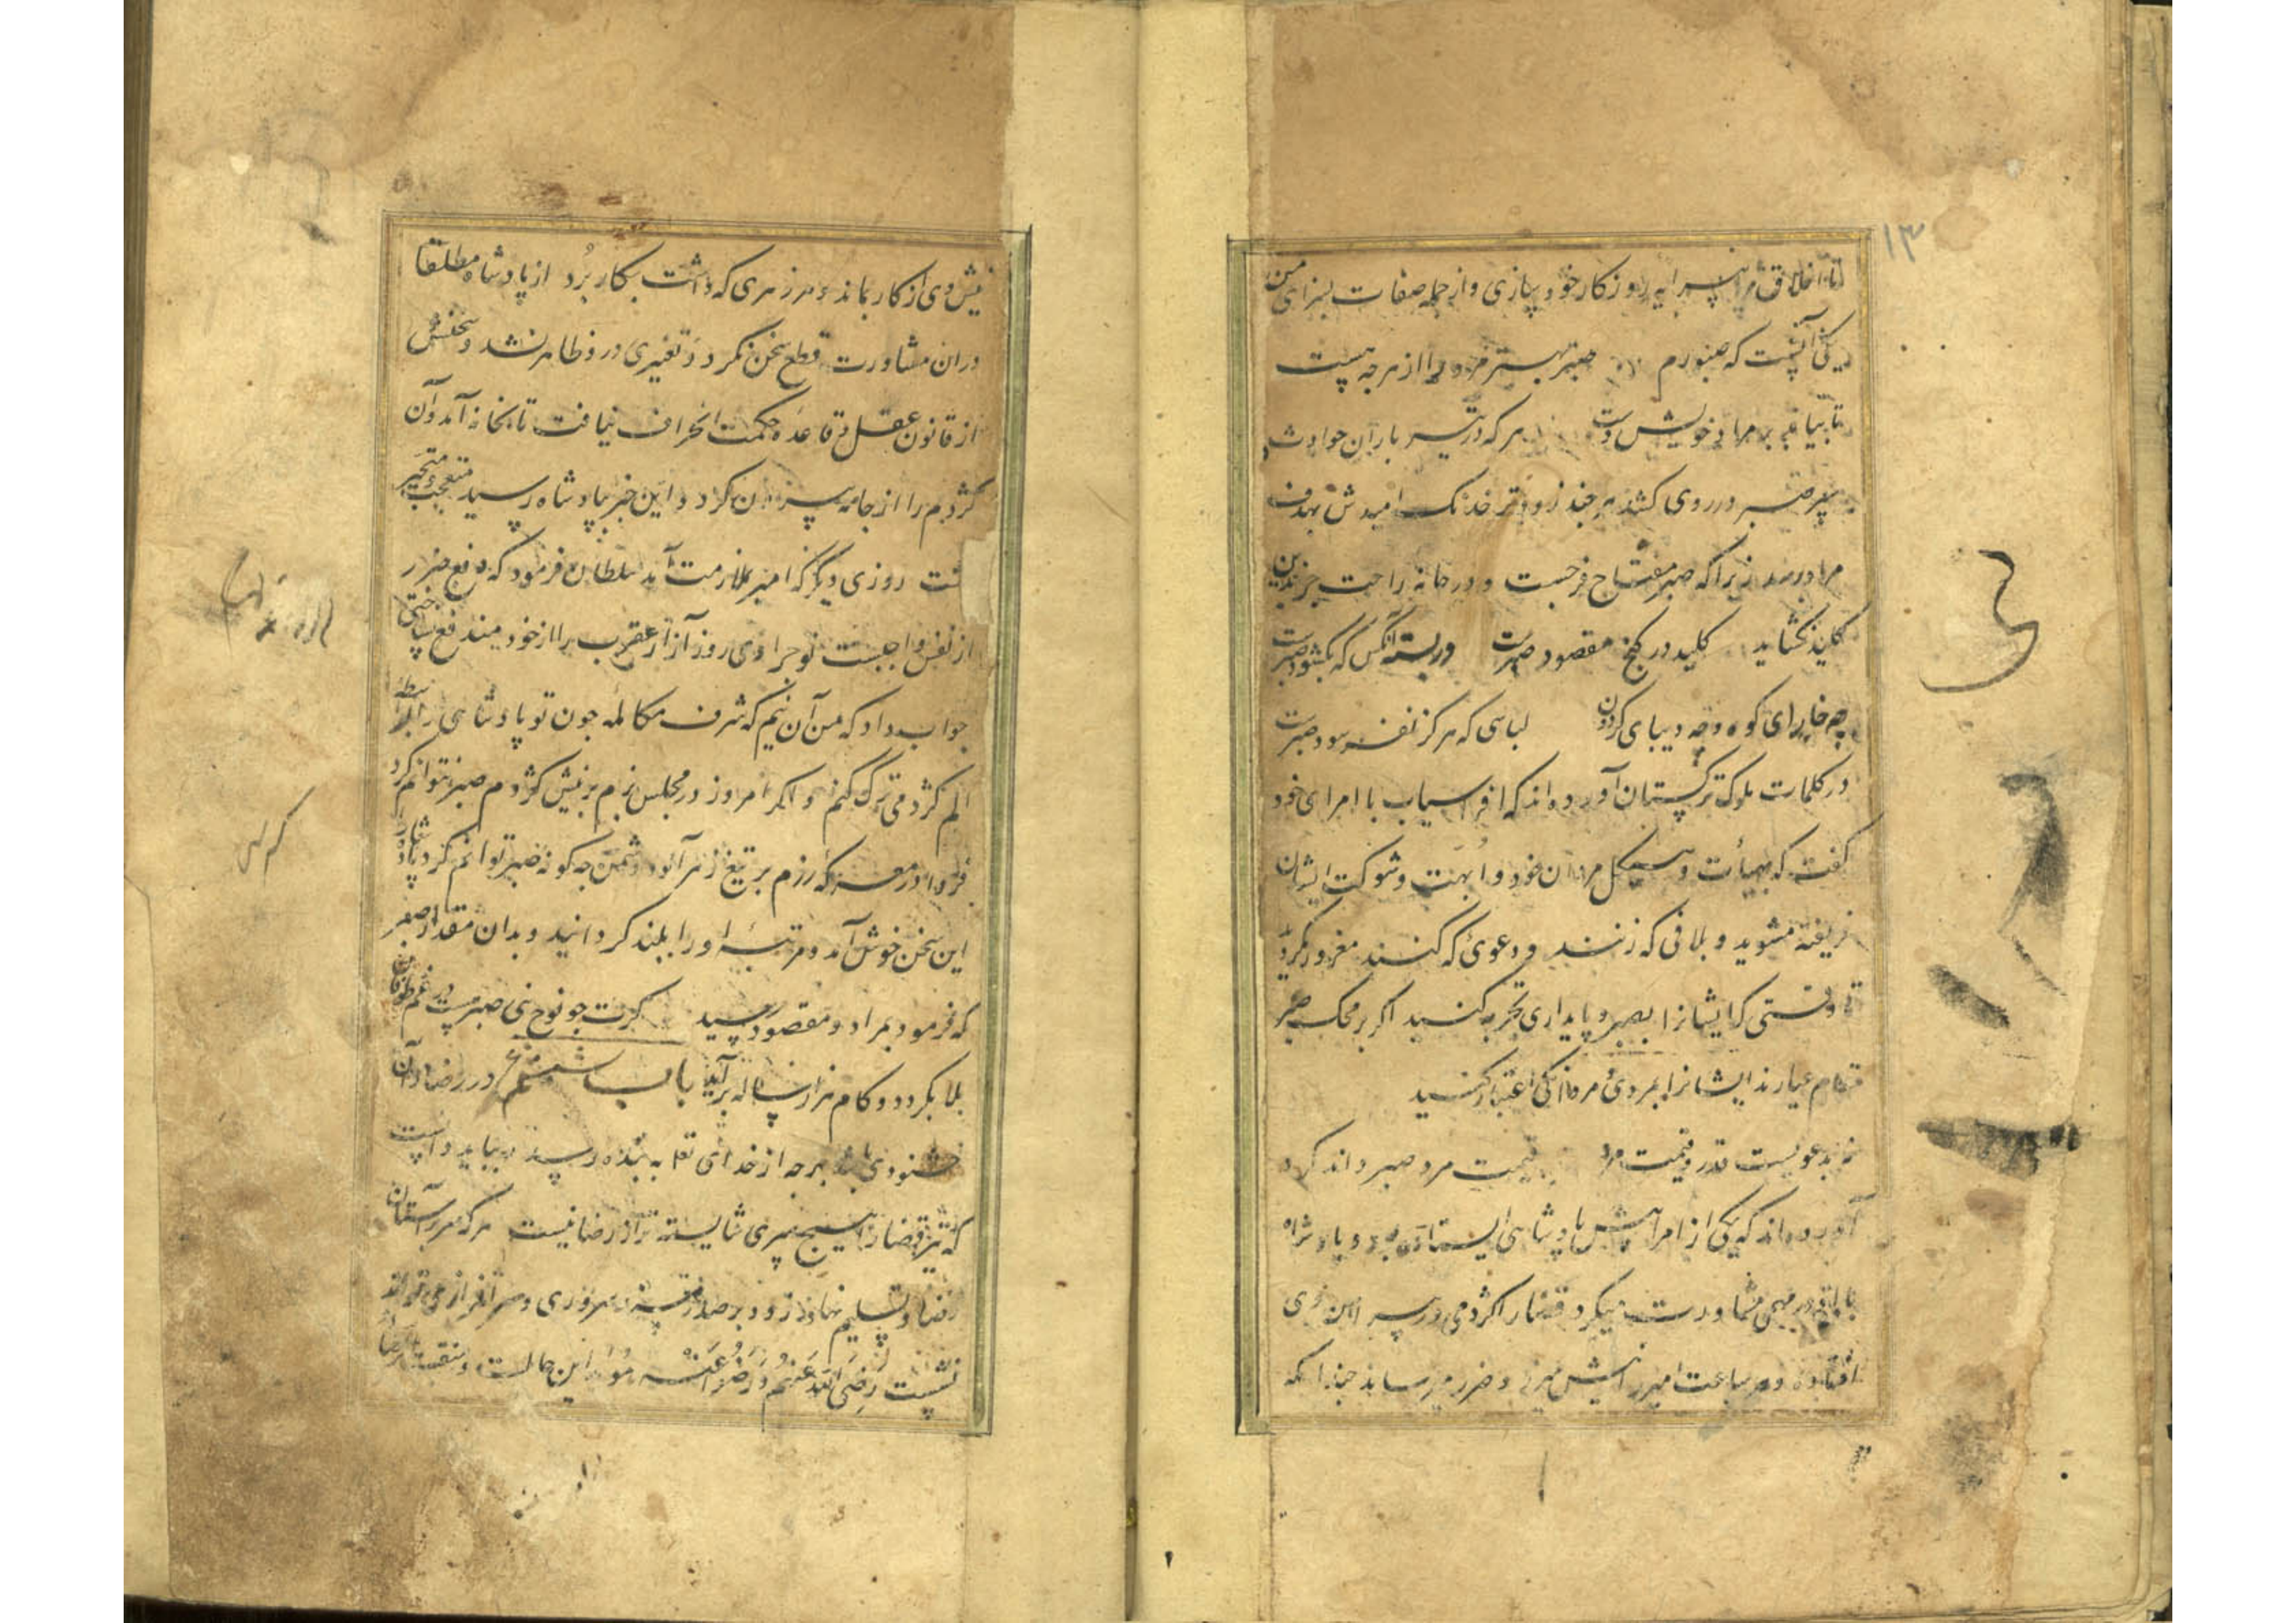 ۱۳
تا اخلاق مرا پیرایه روزکار خود سازی و از جمله صفات بسزای من
یکی آنست که صبورم صبر بهتر مرد را از هرچه هست
تا بیابد بر مراد خویش دست هرکه در تیر باران حوادث
سپر صبر در روی کشد هرچند زودتر خدنک امیدش بهدف
مراد رسد زیرا که صبر مفتاح فرجست و در خانه راحت جز بدین
کلید نکشاید کلید در کنج مقصود صبرست در بسته آنکس که بکشود صبرست
چه خارای کوه و چه دیبای کردون لباسی که هرکز نفرسود صبرست
در کلمات ملوک ترکستان آورده اند که افراسیاب با امرای خود
کفت که بهیأت و هیکل مردان خود و ابهت و شوکت ایشان
فریفته مشوید و بلافی که زنند و دعوئ که کنند مغرور مکردید
تا وقتی که ایشانرا بصبر و پایداری تجربه کنید اکر بر محک صبر
تمام عیارند ایشانرا بمردی و مردانکی اعتبار کنید
نه بدعویست قدر و قیمت مرد قیمت مرد صبر داند کرد
آورده اند که یکی از امرا پیش پادشاهی ایستاده بود و پادشاه
با او در مهمی مشاورت میکرد قضا را کژدمی در پیراهن وی
افتاده و هر ساعت امیر را نیش میزد و ضرر میرساند چندانکه
نیش وی از کار بماند و هر زهری که داشت بکار برد از پادشاه مطلقا
دران مشاورت قطع سخن نکرد و تغیری درو ظاهر نشد و سخنش
از قانون عقل و قاعده حکمت انحراف نیافت تا بخانه آمد و آن
کژدم را از جامه بیرون کرد و این خبر بپادشاه رسید متعجب و متحیر
کشت روزی دیکر که امیر بملازمت آمد سلطان فرمود که دفع ضرر
از نفس واجبست تو چرا دی روز آزار عقرب را از خود مندفع نساختی
جواب داد که من آن نیم که شرف مکالمه چون تو پادشاهی را بواسطه
الم کژدمی ترک کنم و اکر امروز در مجلس بزم بر نیش کژدم صبر نتوانم کرد
فردا در معرکه رزم بر تیغ زهرآلود دشمن چه کونه صبر توانم کرد پادشاه را
این سخن خوش آمد و مرتبه او را بلند کردانید و بدان مقدار صبر
که فرمود بمراد و مقصود رسید کرت چو نوح نبی صبر هست در غم طوفان
بلا بکردد و کام هزار ساله برآید باب ششم در رضا و آن
خشنودی باشد بهرچه از خدای تعا به بنده رسد و بباید دانست
که تیر قضا را هیچ سپری شایسته تر از رضا نیست هرکه سر بر آستان
رضا و تسلیم نهاد زود بر صدر سروری و سرافرازی تواند
نشست رَضِیَ اللَّهُ عَنْهُم وَ رَضُوا عَنْهُ این حالست و منقبت